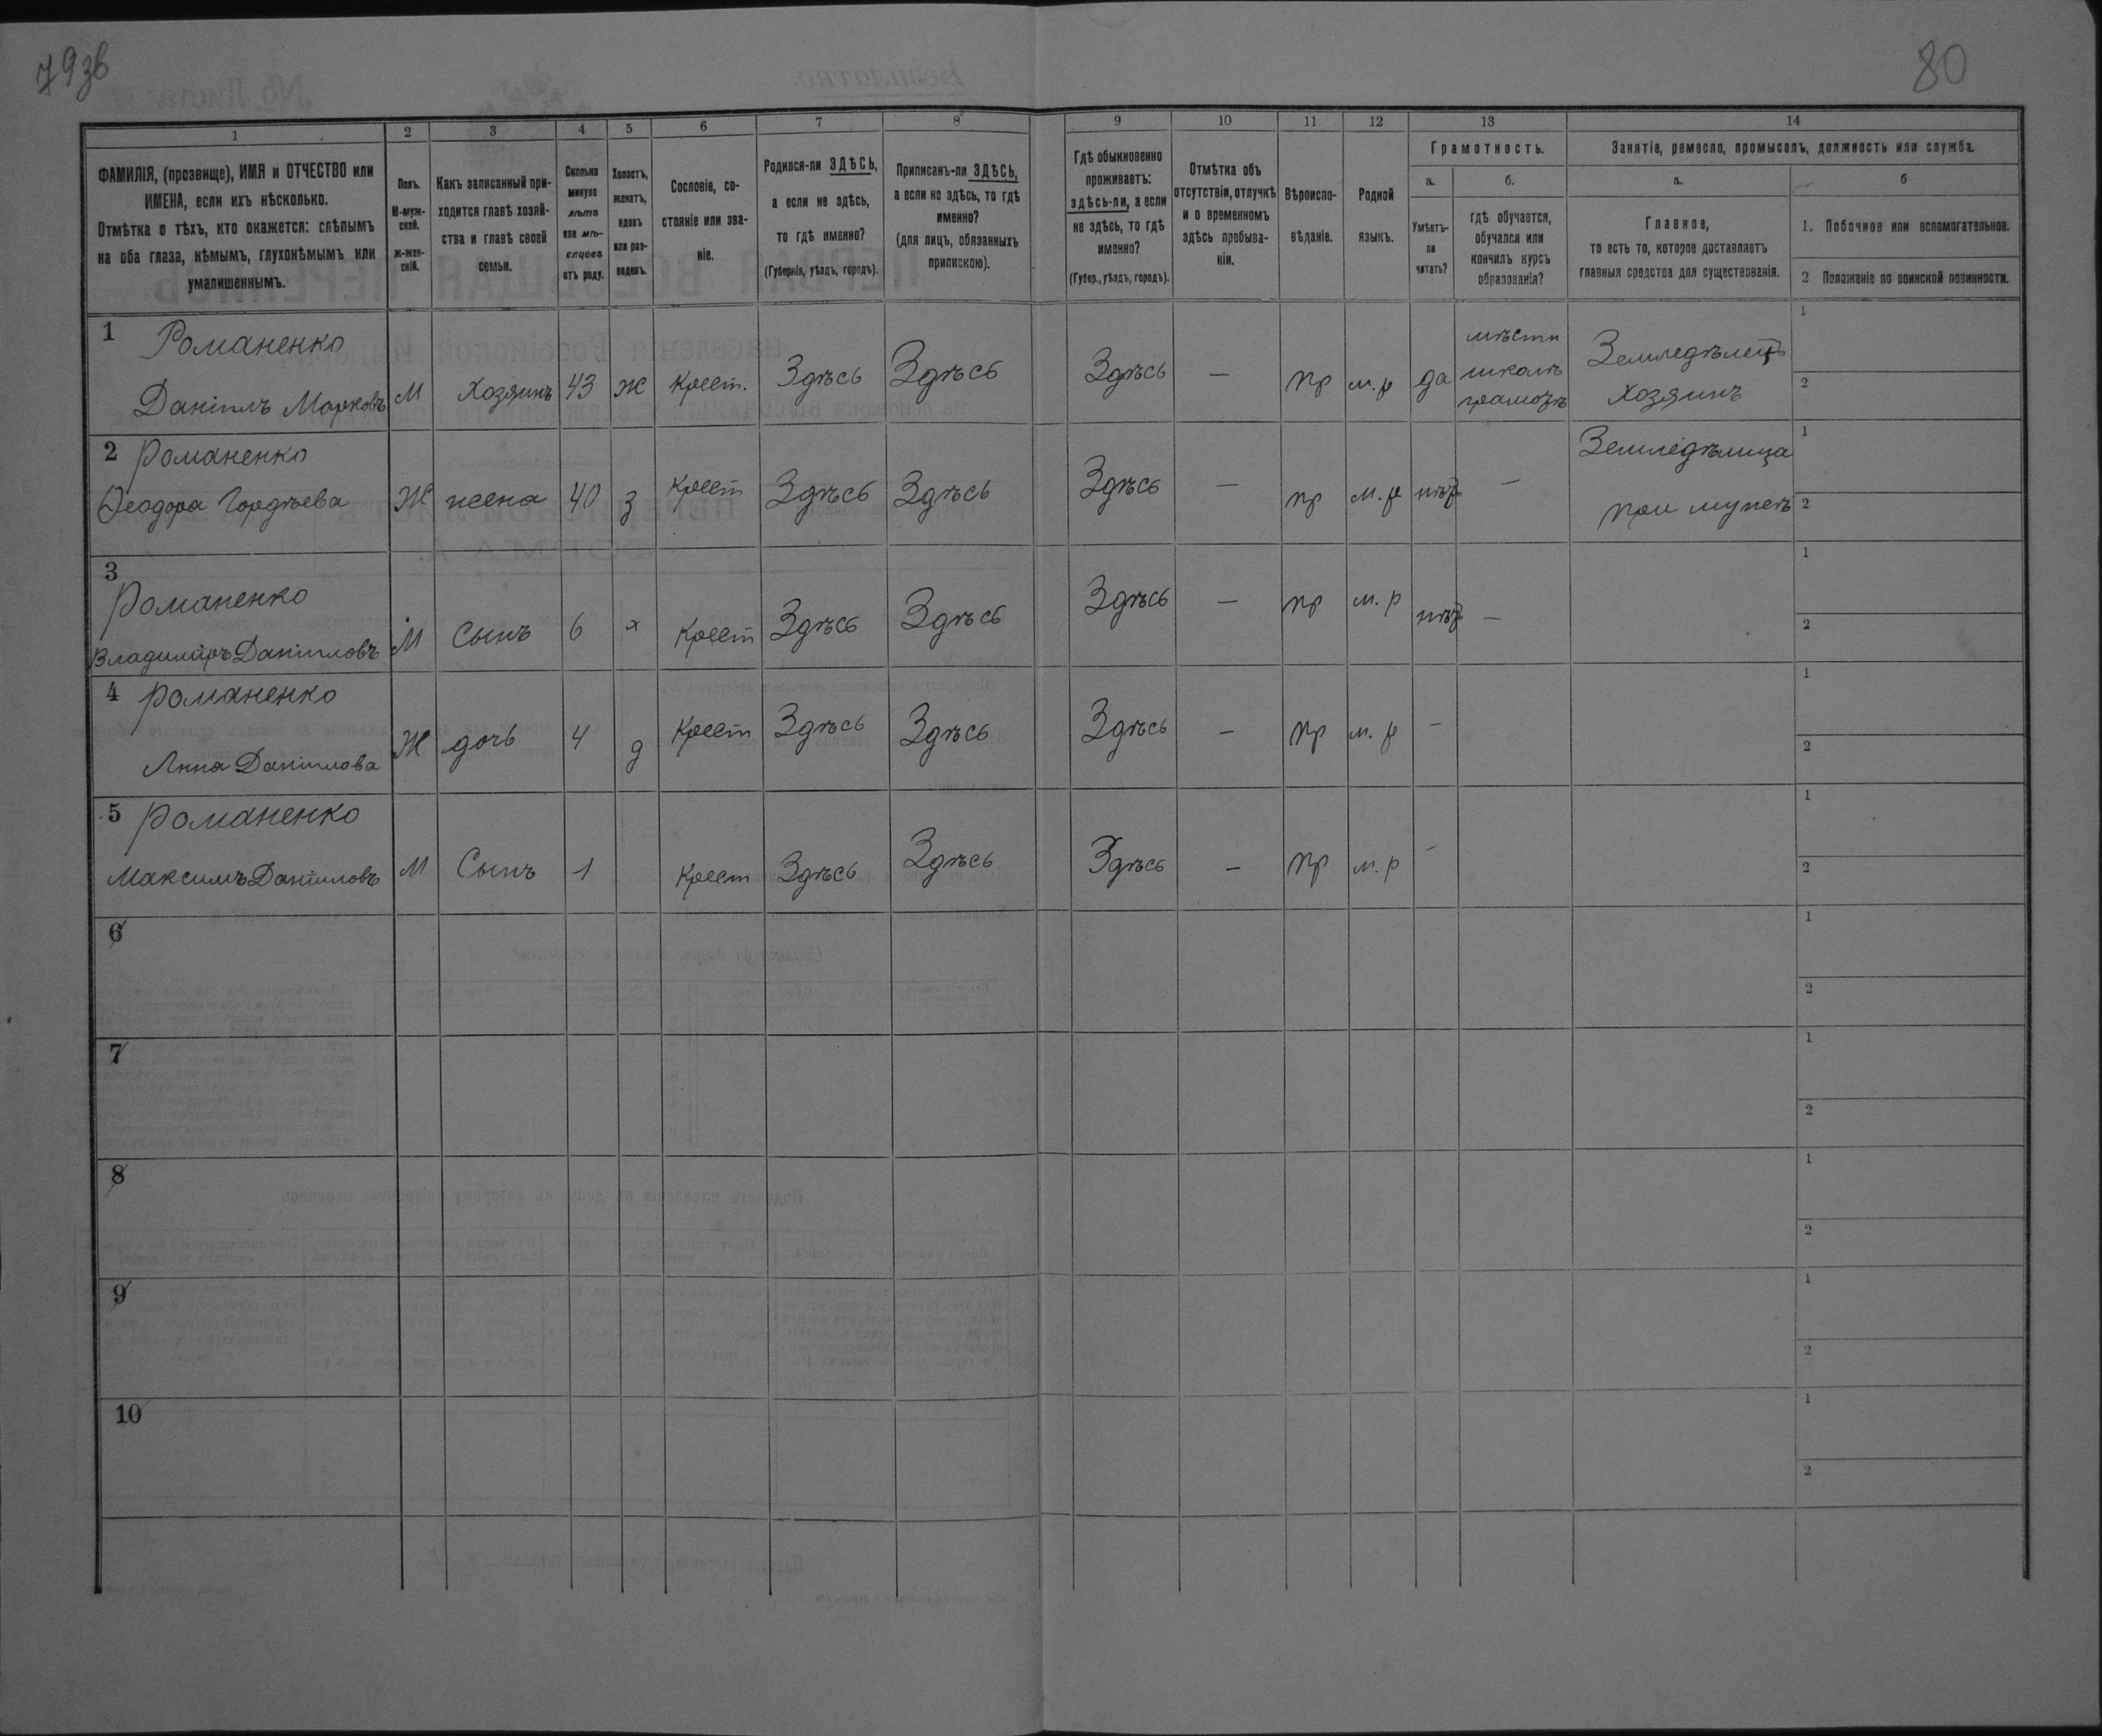 79зв
80
1 2 3 4 5 6 7 8 9 10 11 12 13 14
ФАМИЛІЯ, (прозвище), ИМЯ и ОТЧЕСТВО или
ИМЕНА, если ихъ нѣсколько.
Отмѣтка о тѣхъ, кто окажется: слѣпымъ
на оба глаза, нѣмымъ, глухонѣмымъ или
умалишеннымъ.
Полъ.
М-муж-
ской.
ж-жен-
скій.
Какъ записанный при-
ходится главѣ хозяй-
ства и главѣ своей
семьи.
Сколько
минуло
лѣтъ
или мѣ-
сяцевъ
отъ роду.
Холостъ,
женатъ,
вдовъ
или раз-
веденъ.
Сословіе, со-
стояніе или зва-
ніе.
Родился-ли ЗДѢСЬ,
а если не здѣсь,
то гдѣ именно?
(Губернія, уѣздъ, городъ).
Приписанъ-ли ЗДѢСЬ,
а если не здѣсь, то гдѣ
именно?
(для лицъ, обязанныхъ
припискою).
Гдѣ обыкновенно
проживаетъ:
здѣсь-ли, а если
не здѣсь, то гдѣ
именно?
(Губер., уѣздъ, городъ).
Отмѣтка объ
отсутствіи, отлучкѣ
и о временномъ
здѣсь пребыва-
ніи.
Вѣроиспо-
вѣданіе.
Родной
языкъ.
Грамотность.
а.
Умѣетъ-
ли
читать?
б.
гдѣ обучается,
обучался или
кончилъ курсъ
образованія?
Занятіе, ремесло, промыселъ, должность или служба.
а.
Главное,
то есть то, которое доставляетъ
главныя средства для существованія.
б
1. Побочное или вспомогательное.
2. Положеніе по воинской повинности.
1 Романенко
Даніилъ Марковъ М Хозяинъ 43 ж Крест. Здѣсь Здѣсь Здѣсь — пр м.р да
мѣстн
школѣ
грамотѣ
Земледѣлецъ
Хозяинъ
1
2
2 Романенко
Ѳеодора Гордѣева Ж жена 40 з Крест Здѣсь Здѣсь Здѣсь — пр м.р нѣт —
Земледѣлица
при мужѣ
1
2
3
Романенко
Владиміръ Даніиловъ М Сынъ 6 х Крест Здѣсь Здѣсь Здѣсь — пр м.р нѣт —
1
2
4 Романенко
Анна Даніилова Ж дочь 4 д Крест Здѣсь Здѣсь Здѣсь — пр м.р —
1
2
5 Романенко
Максимъ Даніиловъ М Сынъ 1 Крест Здѣсь Здѣсь Здѣсь — пр м.р —
1
2
6
1
2
7
1
2
8
1
2
9
1
2
10
1
2